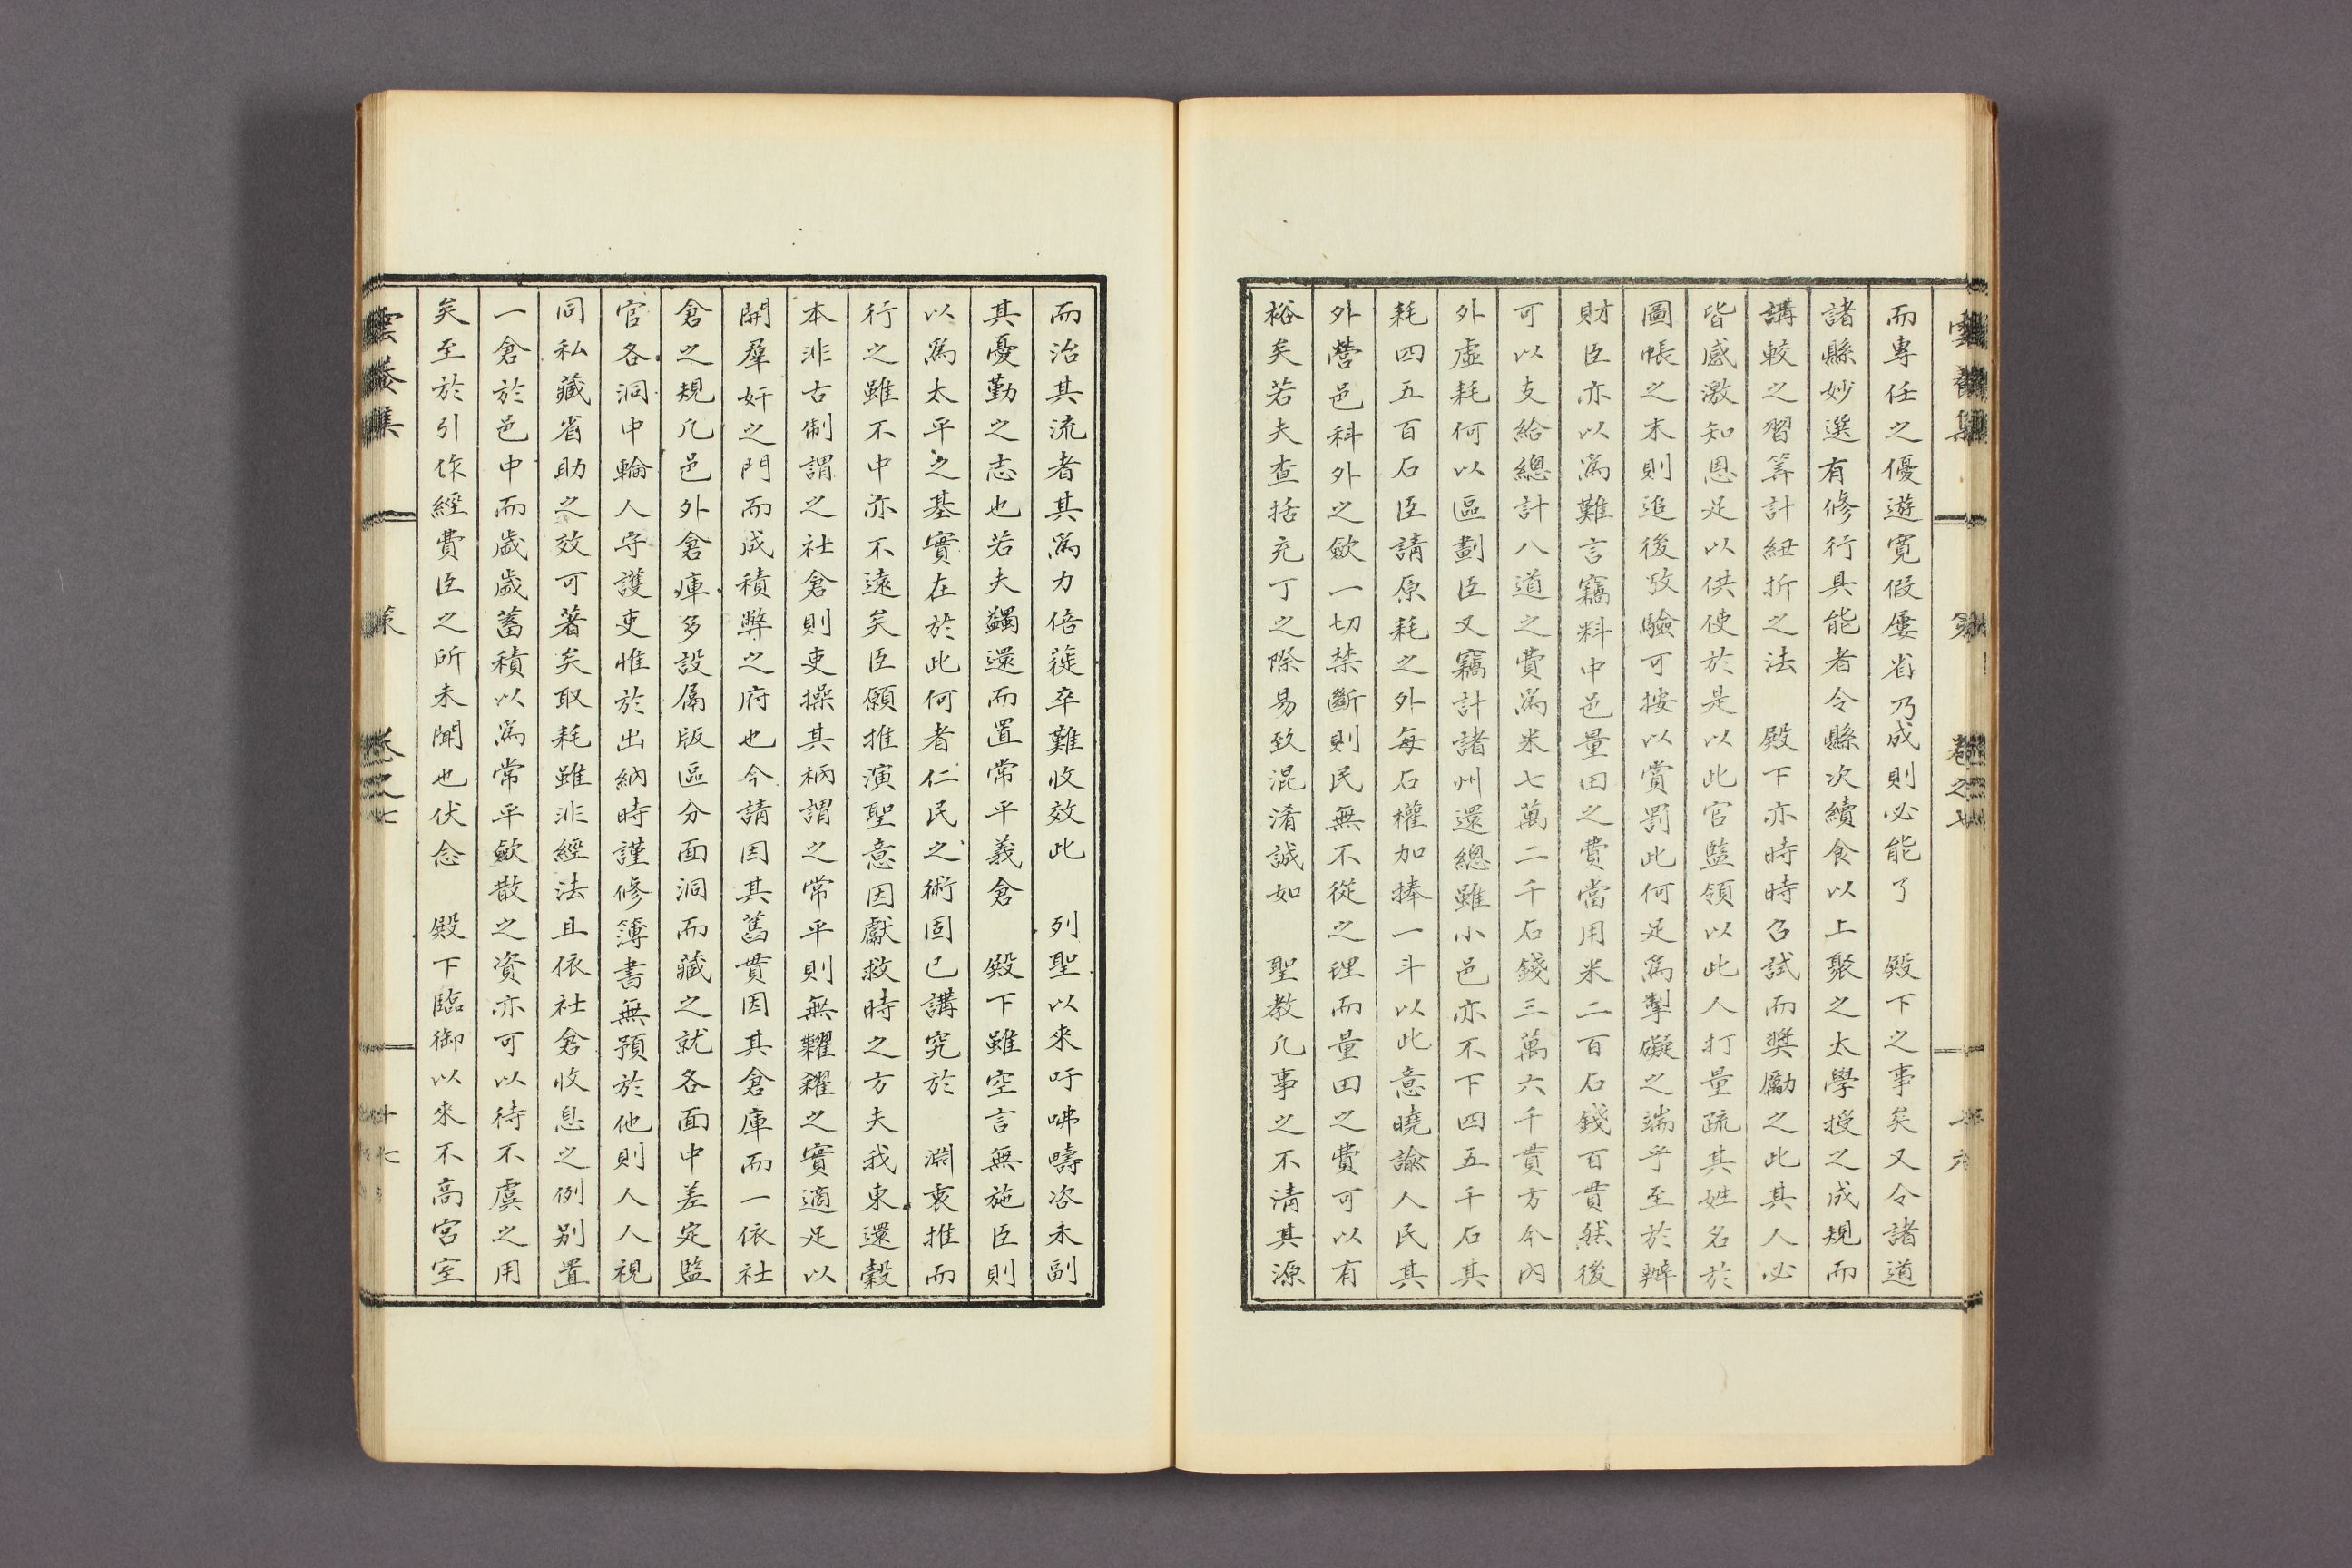 而專任之優遊寬假屢省乃成則必能了 殿下之事矣又令諸道
諸縣妙選有修行具能者令縣次續食以上聚之太學授之成規而
講較之習筭計紐折之法 殿下亦時時召試而奬勵之此其人必
皆感激知恩足以供使於是以此官監領以此人打量疏其姓名於
圖帳之末則追後攷驗可按以賞罰此何足爲掣礙之端乎至於辦
財臣亦以爲難言竊料中邑量田之費當用米二百石錢百貫然後
可以支給總計八道之費爲米七萬二千石錢三萬六千貫方今內
外虛耗何以區劃臣又竊計諸州還總雖小邑亦不下四五千石其
耗四五百石臣請原耗之外每石權加捧一斗以此意曉諭人民其
外營邑科外之歛一切禁斷則民無不從之理而量田之費可以有
裕矣若夫查括充丁之際易致混淆誠如 聖教凡事之不淸其源
而治其流者其爲力倍蓰卒難收效此 列聖以來吁咈疇咨未副
其憂勤之志也若夫蠲還而置常平義倉 殿下雖空言無施臣則
以爲太平之基實在於此何者仁民之術固已講究於 淵衷推而
行之雖不中亦不遠矣臣願推演聖意因獻救時之方夫我東還穀
本非古制謂之社倉則吏操其柄謂之常平則無糶糴之實適足以
開羣奸之門而成積弊之府也今請因其舊貫因其倉庫而一依社
倉之規凡邑外倉庫多設屬版區分面洞而藏之就各面中差定監
官各洞中輪人守護吏惟於出納時謹修簿書無預於他則人人視
同私藏省助之效可著矣取耗雖非經法且依社倉收息之例別置
一倉於邑中而歲歲蓄積以爲常平歛散之資亦可以待不虞之用
矣至於引作經費臣之所未聞也伏念 殿下臨御以來不高宮室
卷之七